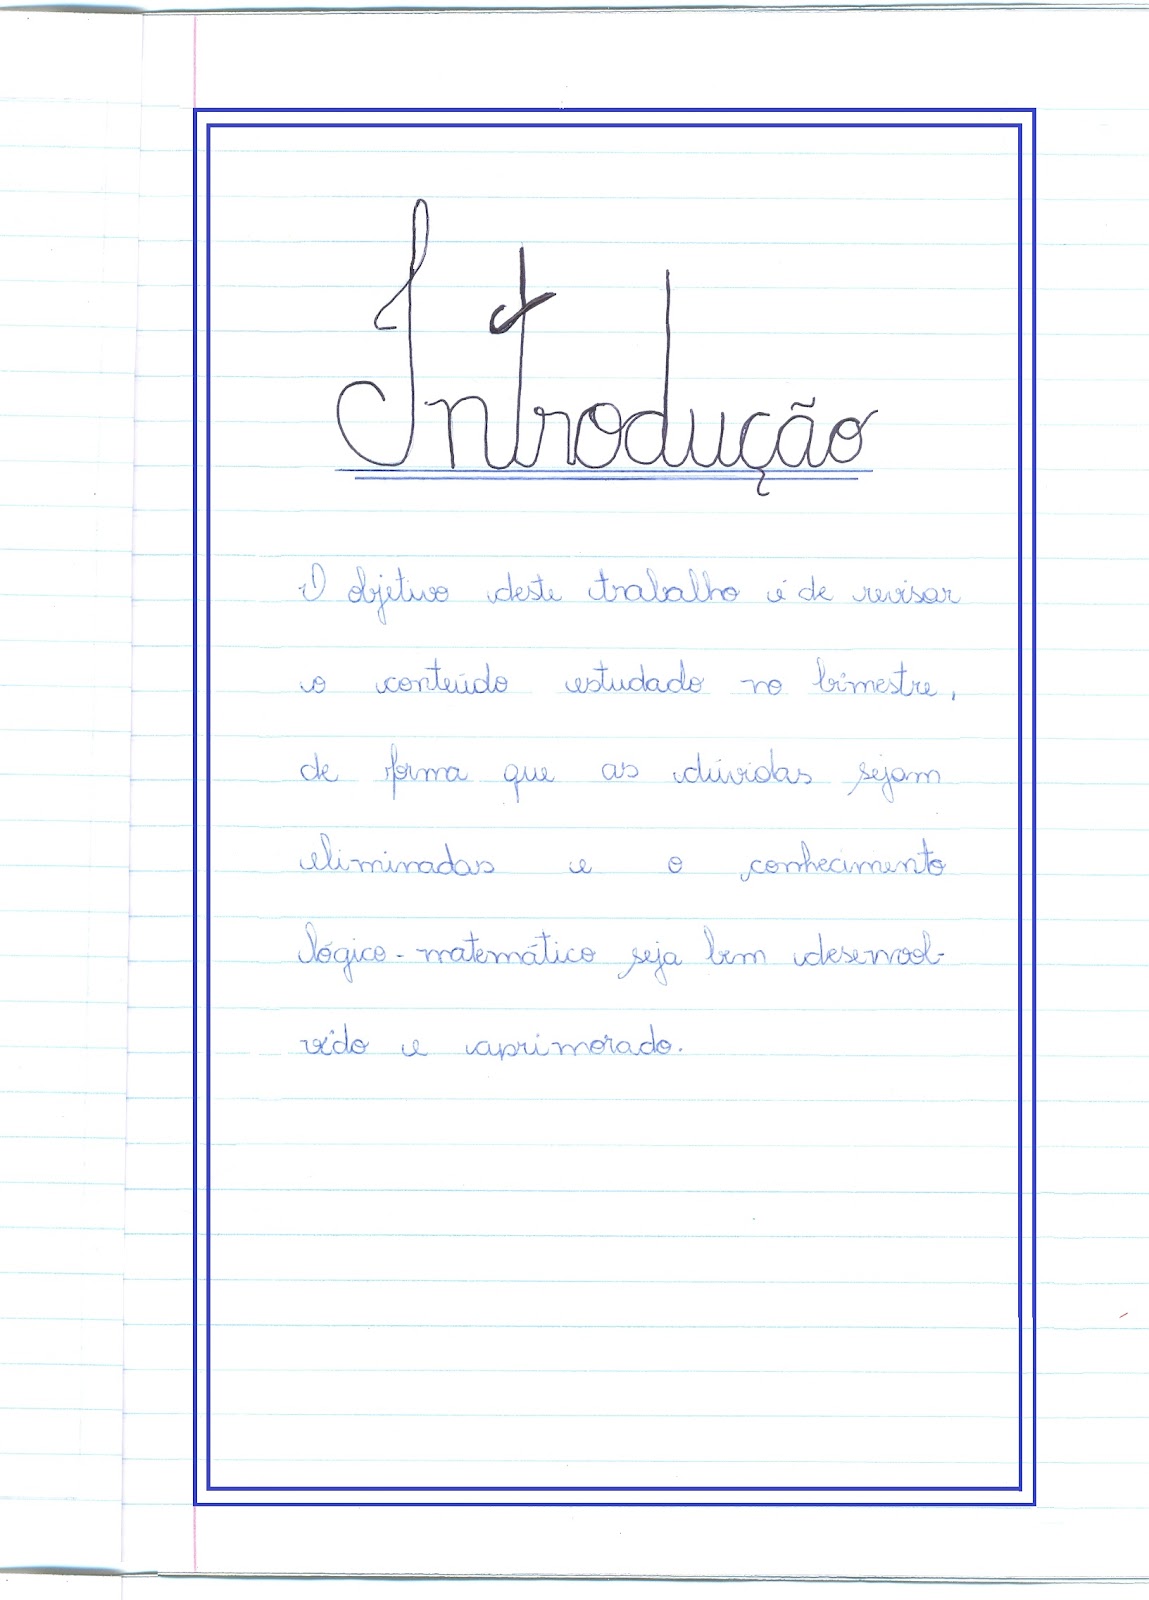 Introdução
O objetivo deste trabalho é de revisar
o conteúdo estudado no bimestre,
de forma que as dúvidas sejam
eliminadas e o conhecimento
lógico-matemático seja bem desenvol-
vido e aprimorado.